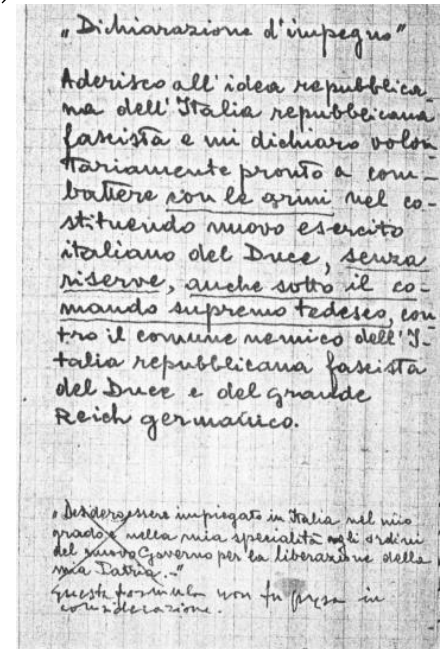 „Dichiarazione d'impegno"
Aderisco all'idea repubblica-
na dell'Italia repubblicana
fascista e mi dichiaro volon
tariamente pronto a com-
battere con le armi nel co-
stituendo nuovo esercito
italiano del Duce, senza
riserve, anche sotto il co-
mando supremo tedesco, con
tro il comune nemico dell'I-
talia repubblicana fascista
del Duce e del grande
Reich germanico.
„Desidero essere impiegato in Italia nel mio
grado e nella mia specialità agli ordini
del nuovo Governo per la liberazione della
mia Patria.-"
Questa formula non fu presa in
considerazione.